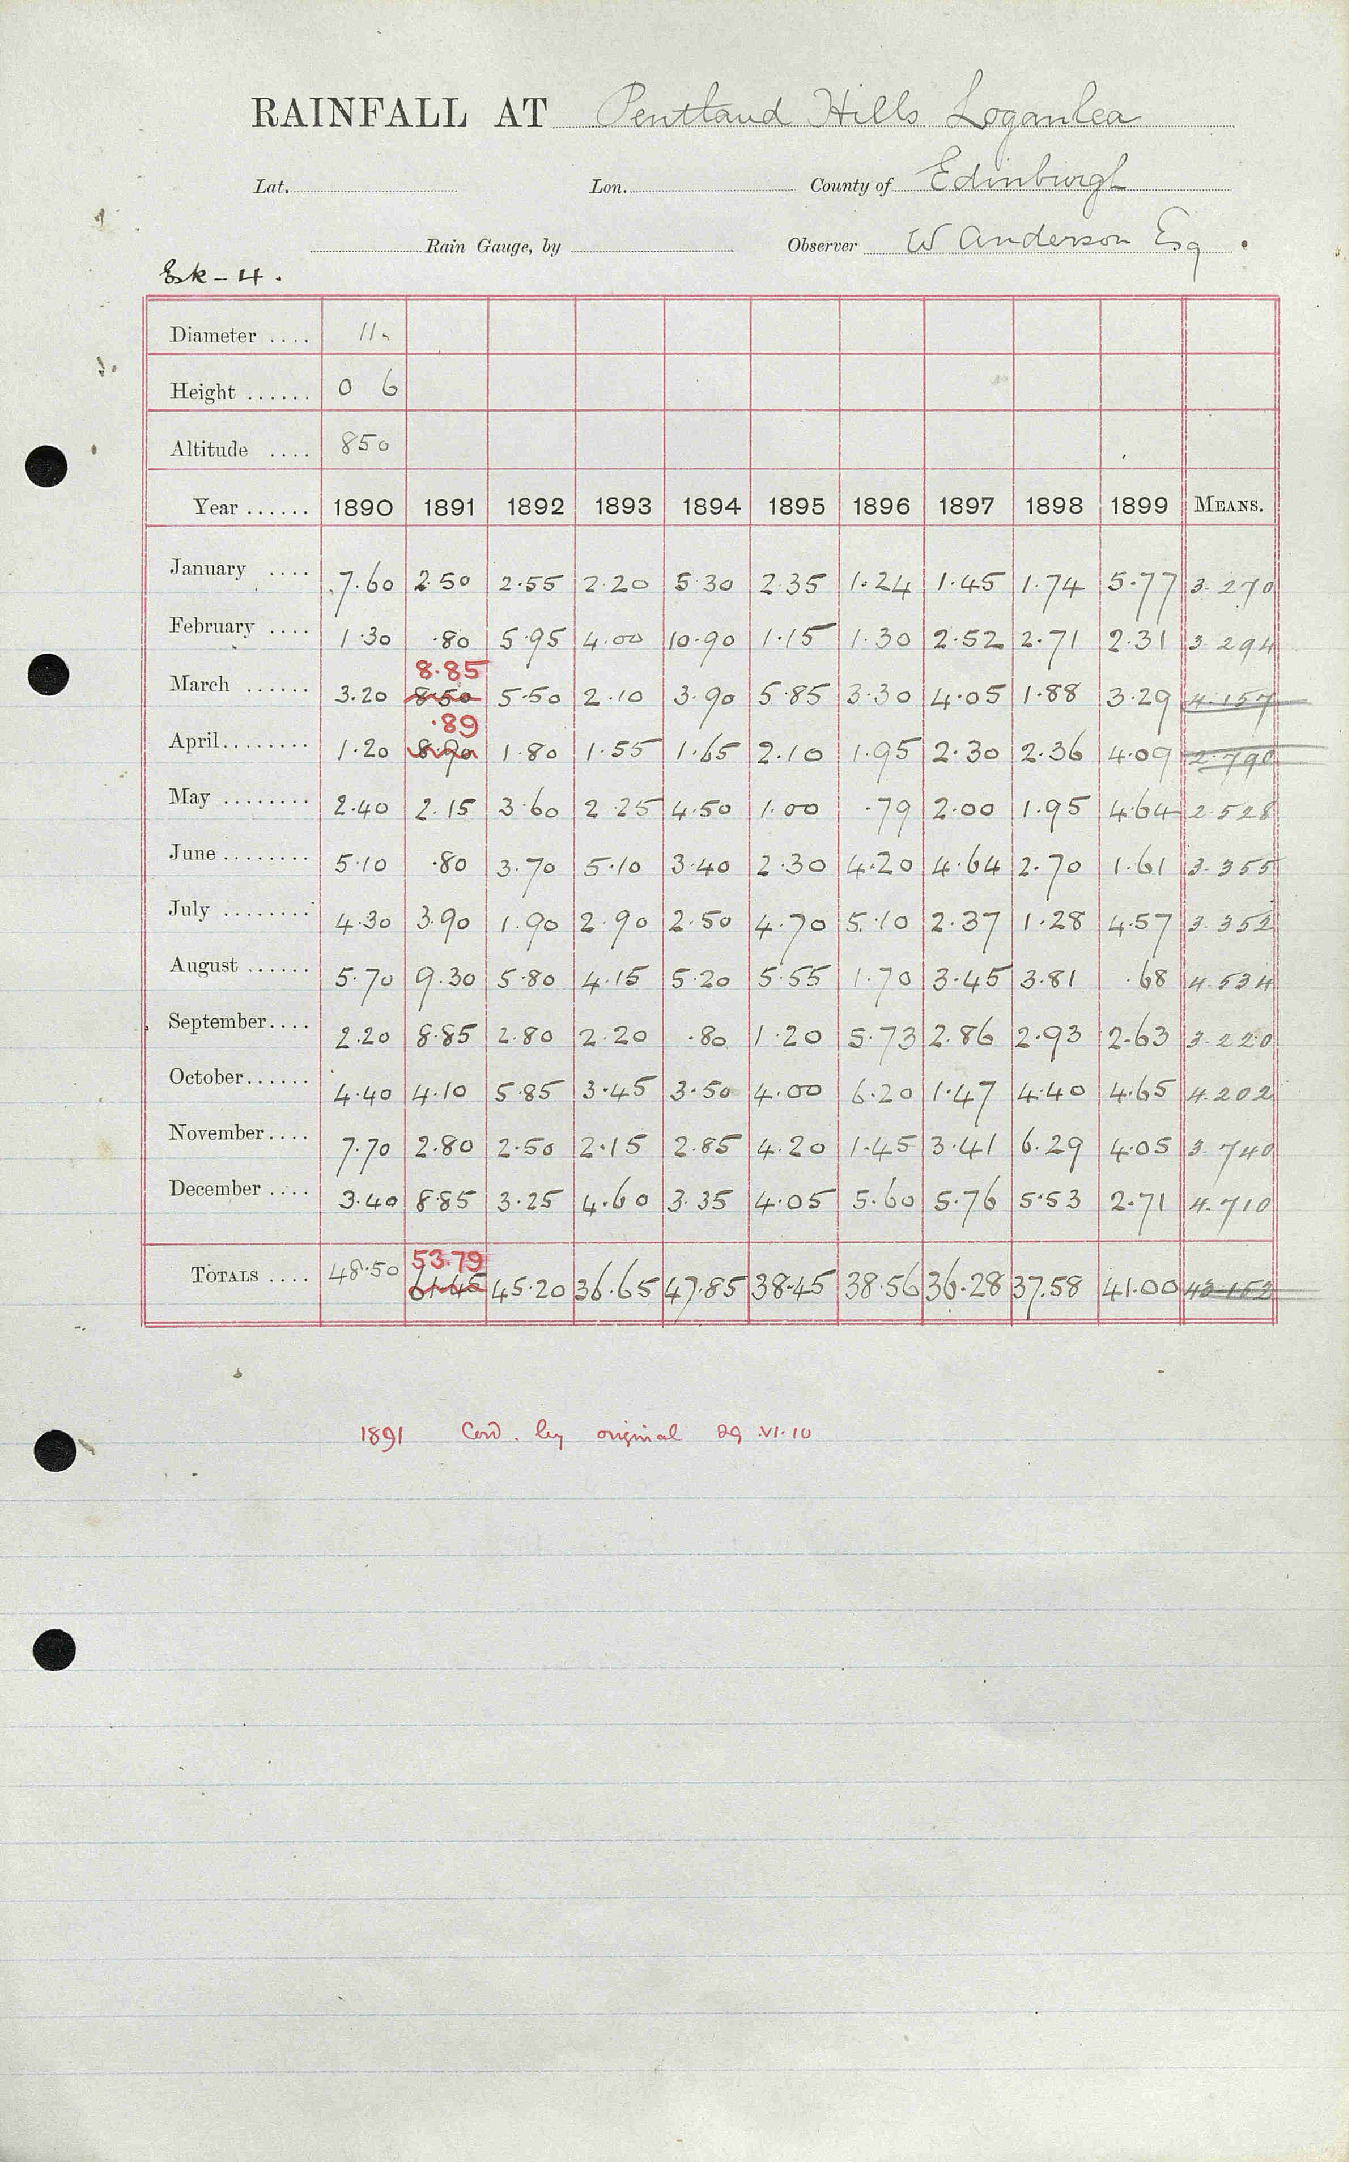 RAINFALL AT Pentland Hills Loganlea
Lat. Lon. County of Edinburgh
Rain Gauge, by Observer W Anderson Esq
Esk-4.
Diameter .... 11.
Height ...... 0 6
Altitude .... 850
Year ...... 1890 1891 1892 1893 1894 1895 1896 1897 1898 1899 MEANS.
January .... 7.60 2.50 2.55 2.20 5.30 2.35 1.24 1.45 1.74 5.77 3.270
February .... 1.30 .80 5.95 4.00 10.90 1.15 1.30 2.52 2.71 2.31 3.294
8.85
March ...... 3.20 8.50 5.50 2.10 3.90 5.85 3.30 4.05 1.88 3.29 4.157
.89
April........ 1.20 8.90 1.80 1.55 1.65 2.10 1.95 2.30 2.36 4.09 2.790
May ........ 2.40 2.15 3.60 2.25 4.50 1.00 .79 2.00 1.95 4.64 2.528
June ........ 5.10 .80 3.70 5.10 3.40 2.30 4.20 4.64 2.70 1.61 3.355
July ........ 4.30 3.90 1.90 2.90 2.50 4.70 5.10 2.37 1.28 4.57 3.352
August ...... 5.70 9.30 5.80 4.15 5.20 5.55 1.70 3.45 3.81 .68 4.534
September.... 2.20 8.85 2.80 2.20 .80 1.20 5.73 2.86 2.93 2.63 3.220
October...... 4.40 4.10 5.85 3.45 3.50 4.00 6.20 1.47 4.40 4.65 4.202
November.... 7.70 2.80 2.50 2.15 2.85 4.20 1.45 3.41 6.29 4.05 3.740
December .... 3.40 8.85 3.25 4.60 3.35 4.05 5.60 5.76 5.53 2.71 4.710
53.79
TOTALS .... 48.50 61.45 45.20 36.65 47.85 38.45 38.56 36.28 37.58 41.00 43.152
1891 Cord. by original 29.VI.10